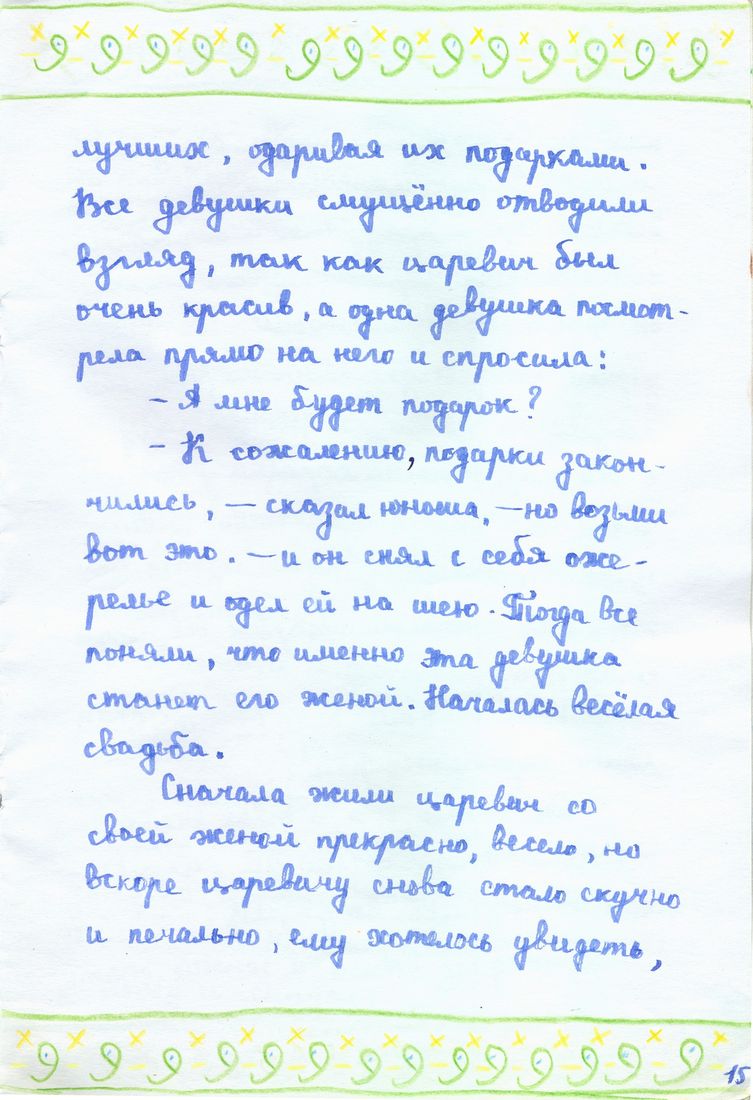 лучших, одаривая их подарками.
Все девушки смущённо отводили
взгляд, так как царевич был
очень красив, а одна девушка посмот-
рела прямо на него и спросила:
– А мне будет подарок?
– К сожалению, подарки закон-
чились, — сказал юноша, — но возьми
вот это. — и он снял с себя оже-
релье и одел ей на шею. Тогда все
поняли, что именно эта девушка
станет его женой. Началась весёлая
свадьба.
Сначала жили царевич со
своей женой прекрасно, весело, но
вскоре царевичу снова стало скучно
и печально, ему хотелось увидеть,
15